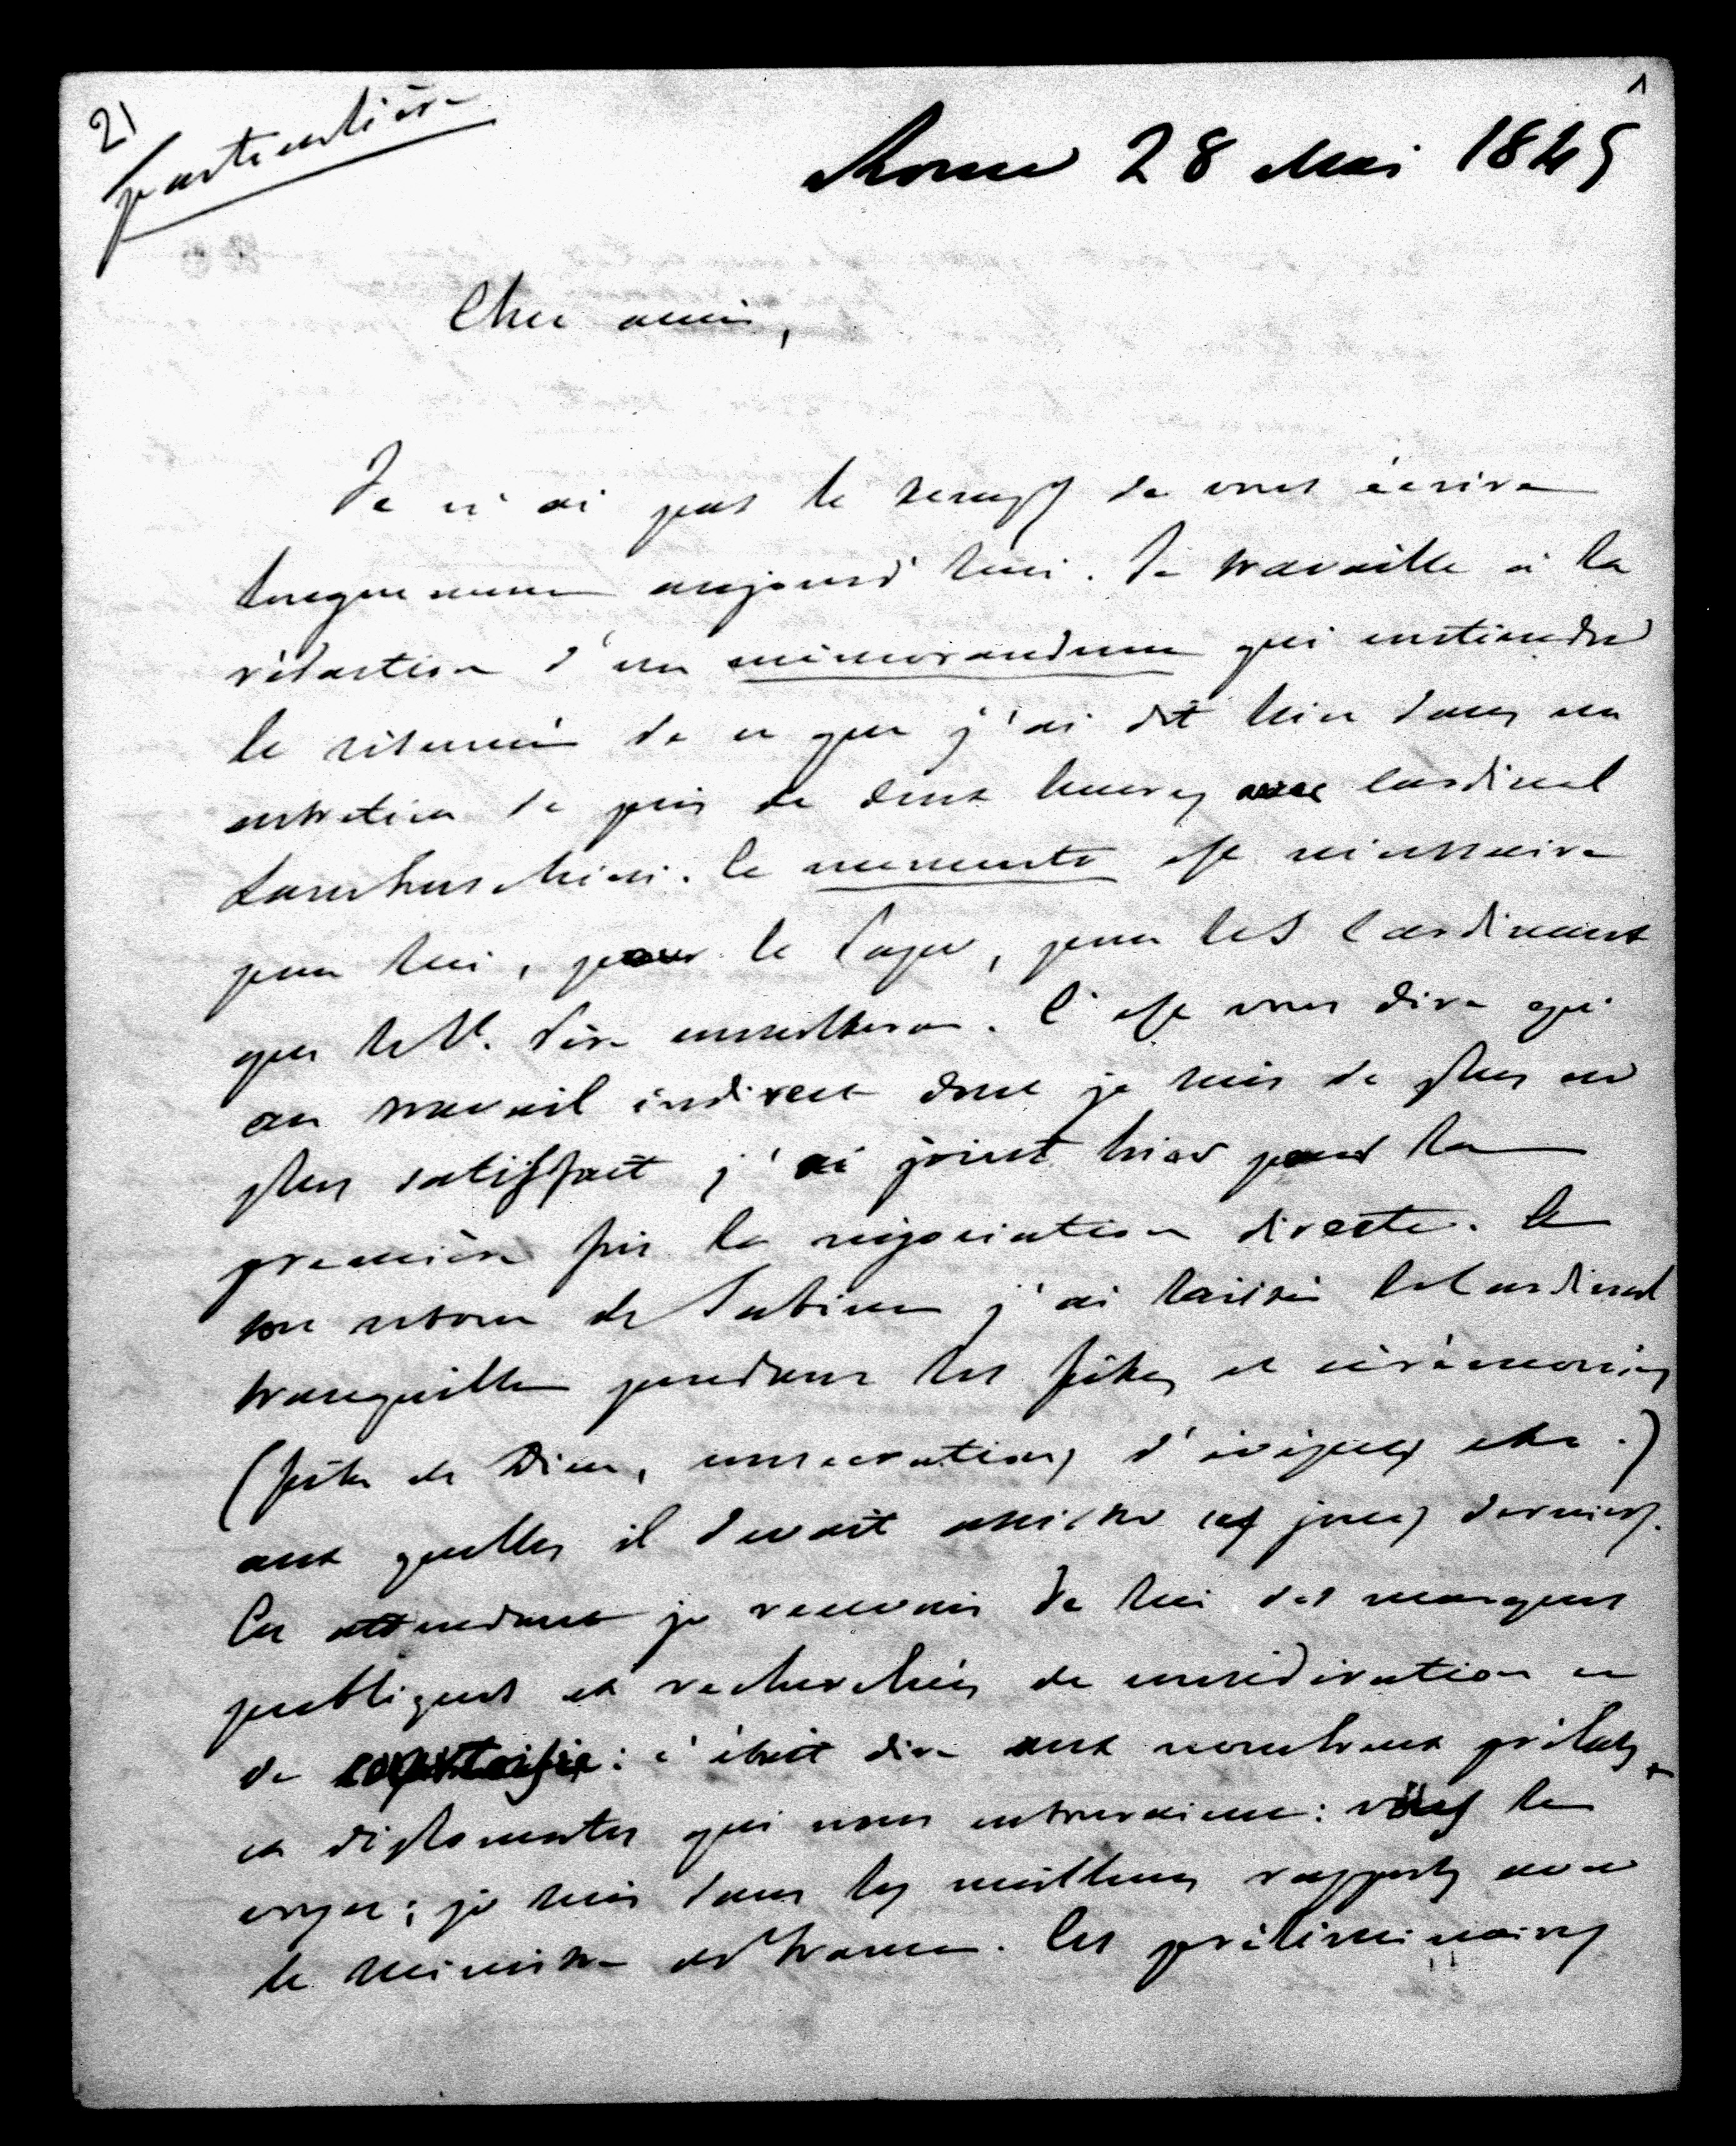 2)
particulière
1
Rome 28 Mai 1845
Cher ami,
Je n'ai pas le temps de vous écrire
longuement aujourd'hui. Je travaille à la
rédaction d'un mémorandum qui contiendra
le résumé de ce que j'ai dit hier dans un
entretien de près de deux heures avec Cardinal
Lambruschini. Ce memento est nécessaire
pour lui, pour le Pape, pour les Cardinaux
que le St. Père consultera. C'est vous dire qu'
au travail indirect dont je suis de plus en
plus satisfait j'ai joint hier pour la
première fois la négociation directe. À
son retour de Sabine j'ai laissé le Cardinal
tranquille pendant les fêtes et cérémonies
(fête de Dieu, consécrations d'évêques etc.)
aux quelles il devait assister ces jours derniers.
En attendant je recevais de lui des marques
publiques et recherchées de considération et
de courtoisie: c'était dire aux nombreux prélats
et diplomates qui nous entouraient: vous le
voyez; je suis dans les meilleurs rapports avec
le ministre de France. Les préliminaires